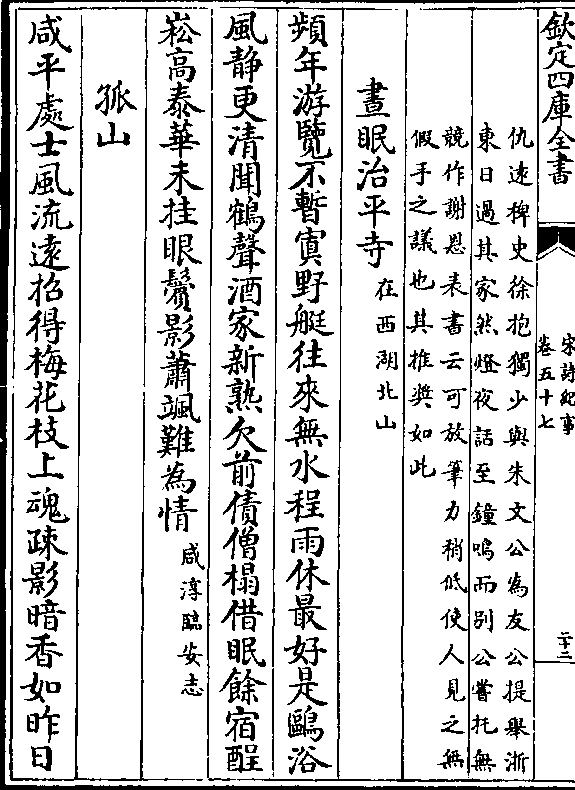 欽定四庫全書
宋詩紀事
卷五十七
二十三
仇遠稗史徐抱獨少與朱文公為友公提舉浙
東日過其家然燈夜話至鐘鳴而別公嘗托無
競作謝恩表書云可放筆力稍低使人見之無
假手之議也其推奬如此
晝眠治平寺在西湖北山
頻年游覽不暫寘野艇往來無水程雨休最好是鷗浴
風静更清聞鶴聲酒家新熟欠前債僧榻借眠餘宿酲
崧高泰華未挂眼鬢影蕭颯難為情咸淳臨安志
孤山
咸平處士風流遠招得梅花枝上魂疎影暗香如昨日